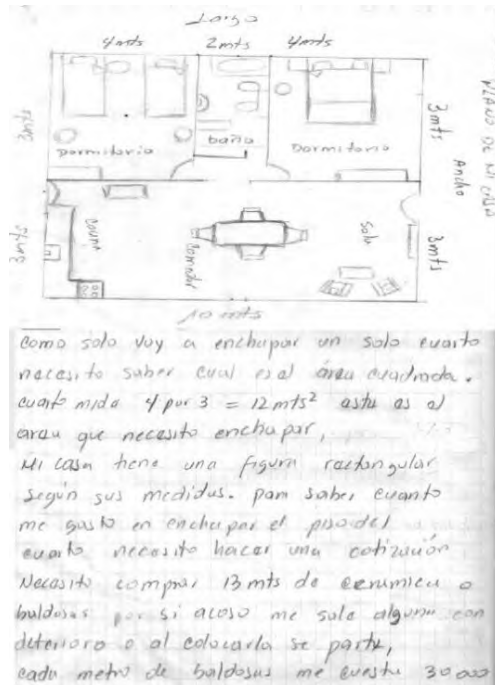 Largo
4mts 2mts 4mts
3mts
3mts
PLANO DE MI CASA
Ancho
baño
Dormitorio
Dormitorio
3mts
3mts
Comedor
Sala
10 mts
como solo voy a enchapar un solo cuarto
necesito saber cual es el área cuadrada.
cuarto mide 4 por 3 = 12mts² esta es el
area que necesito enchapar,
Mi casa tiene una figura rectangular
según sus medidas. para saber cuanto
me gasto en enchapar el piso del
cuarto necesito hacer una cotización
Necesito comprar 13 mts de ceramica o
baldosas por si acaso me sale alguna con
deterioro o al colocarla se parte,
cada metro de baldosas me cuesta 30.000